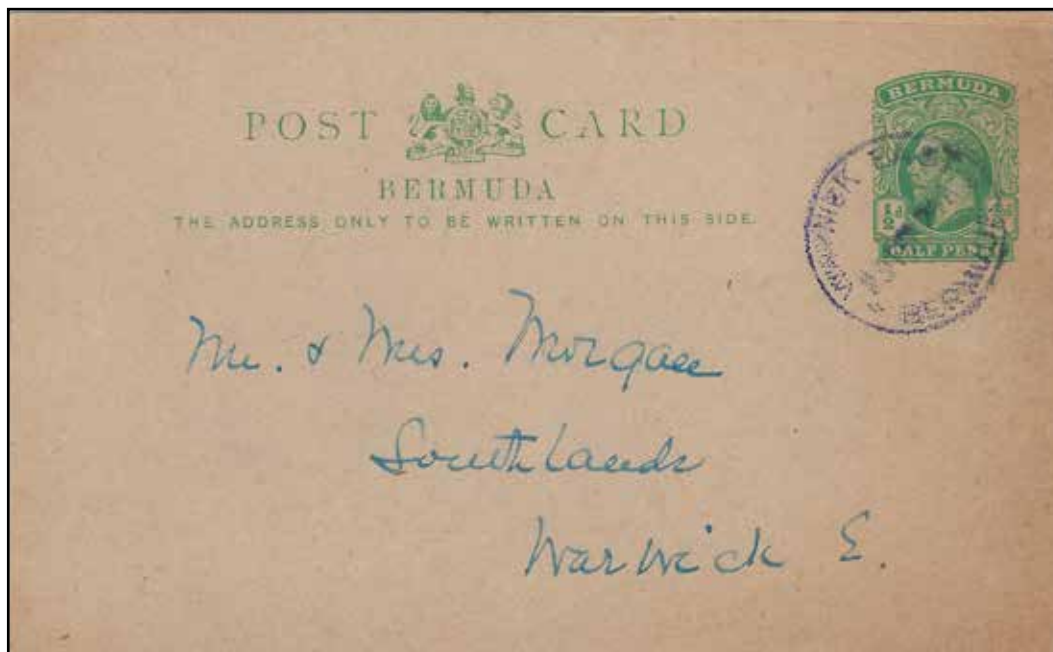 POST CARD
BERMUDA
THE ADDRESS ONLY TO BE WRITTEN ON THIS SIDE.
BERMUDA
½d
HALF PENNY
WARWICK EAST
BERMUDA
Mr. & Mrs. Morgan
Southlands
Warwick E.